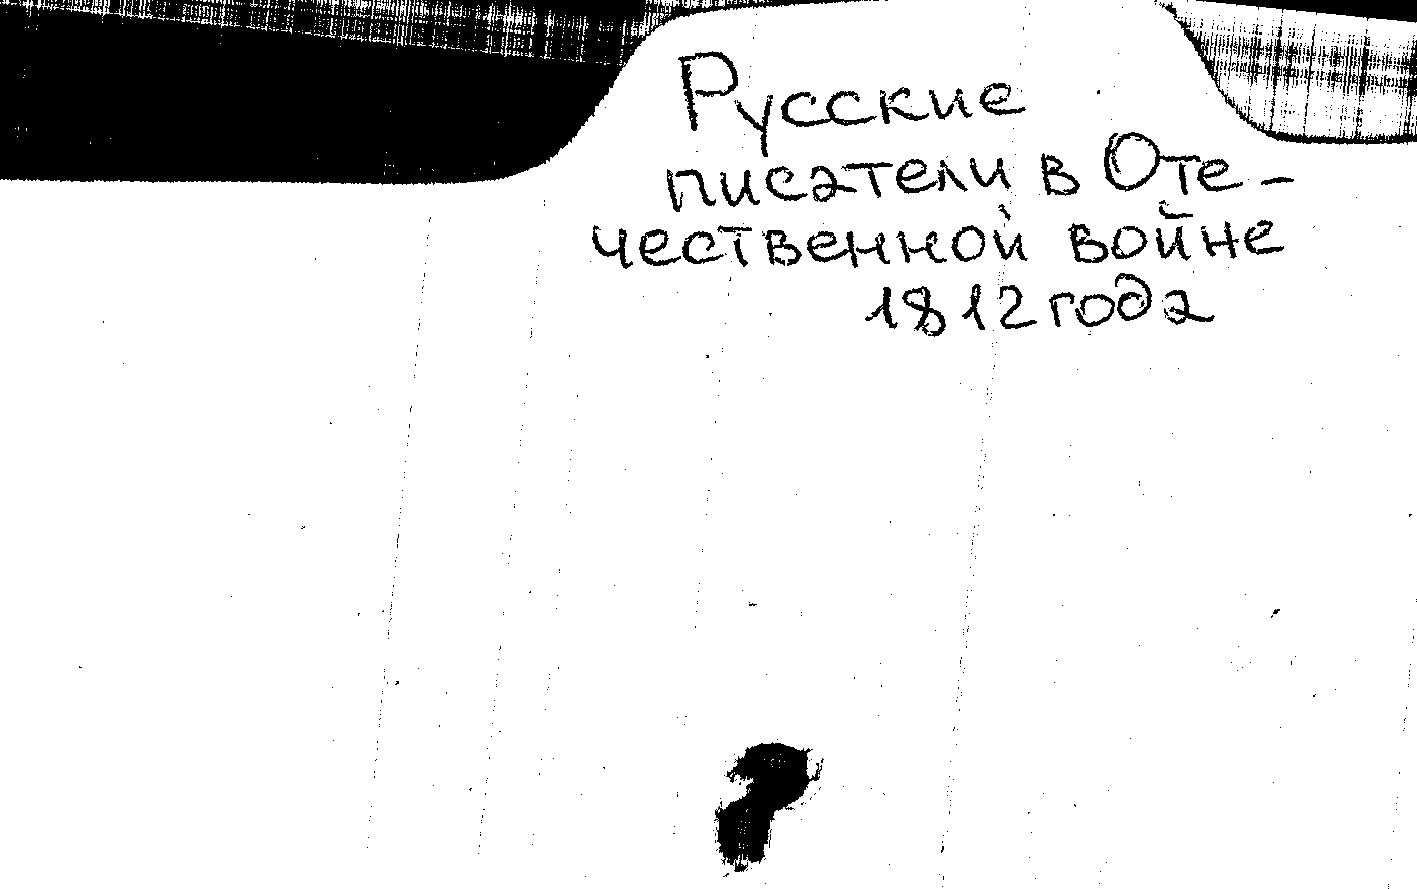 Русские
писатели в Оте-
чественной войне
1812 года